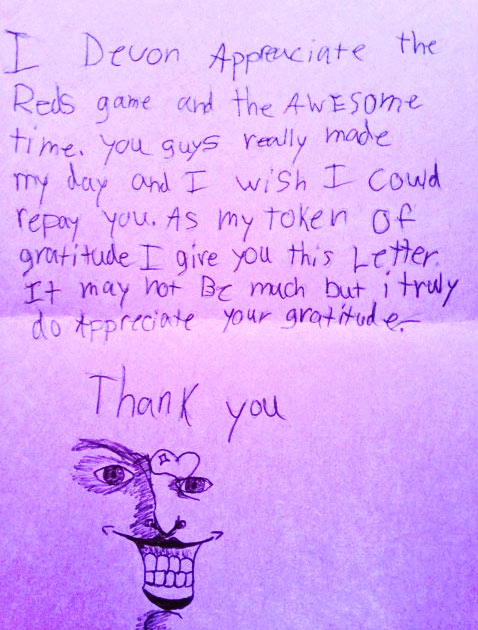 I Devon Apprenciate the
Reds game and the AWESome
time. you guys really made
my day and I wish I Could
repay you. As my token of
gratitude I give you this Letter.
It may not Be much but i truly
do Appreciate your gratitude.
Thank you